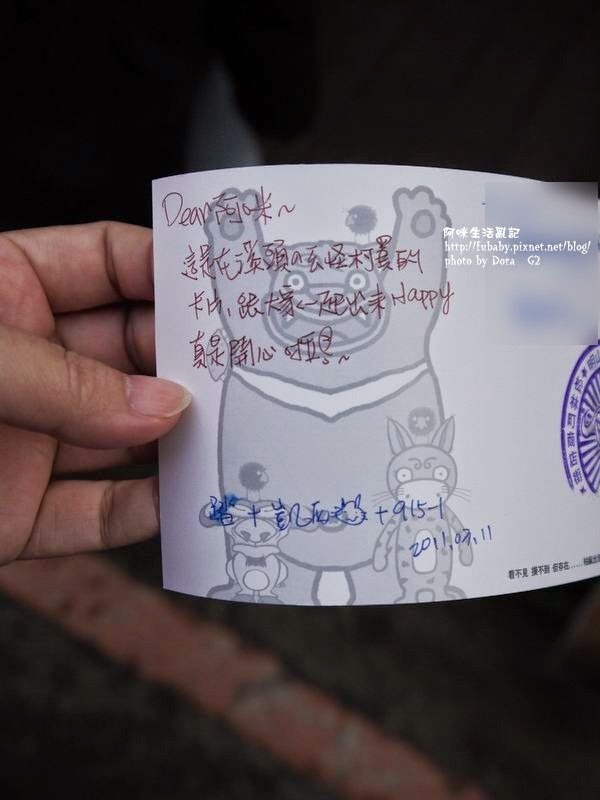 Dear 阿咪~
這是在溪頭の妖怪村買的
卡片,跟大家一起出來Happy
真是開心啊!~
+ 凱西 + 915-1
2011.07.11
看不見 摸不到 但存在……
商店街
阿咪生活亂記
http://fubaby.pixnet.net/blog/
photo by Dora G2